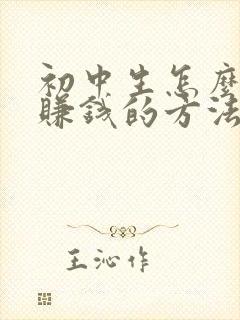 初中生怎麼
賺錢的方法
王沁作